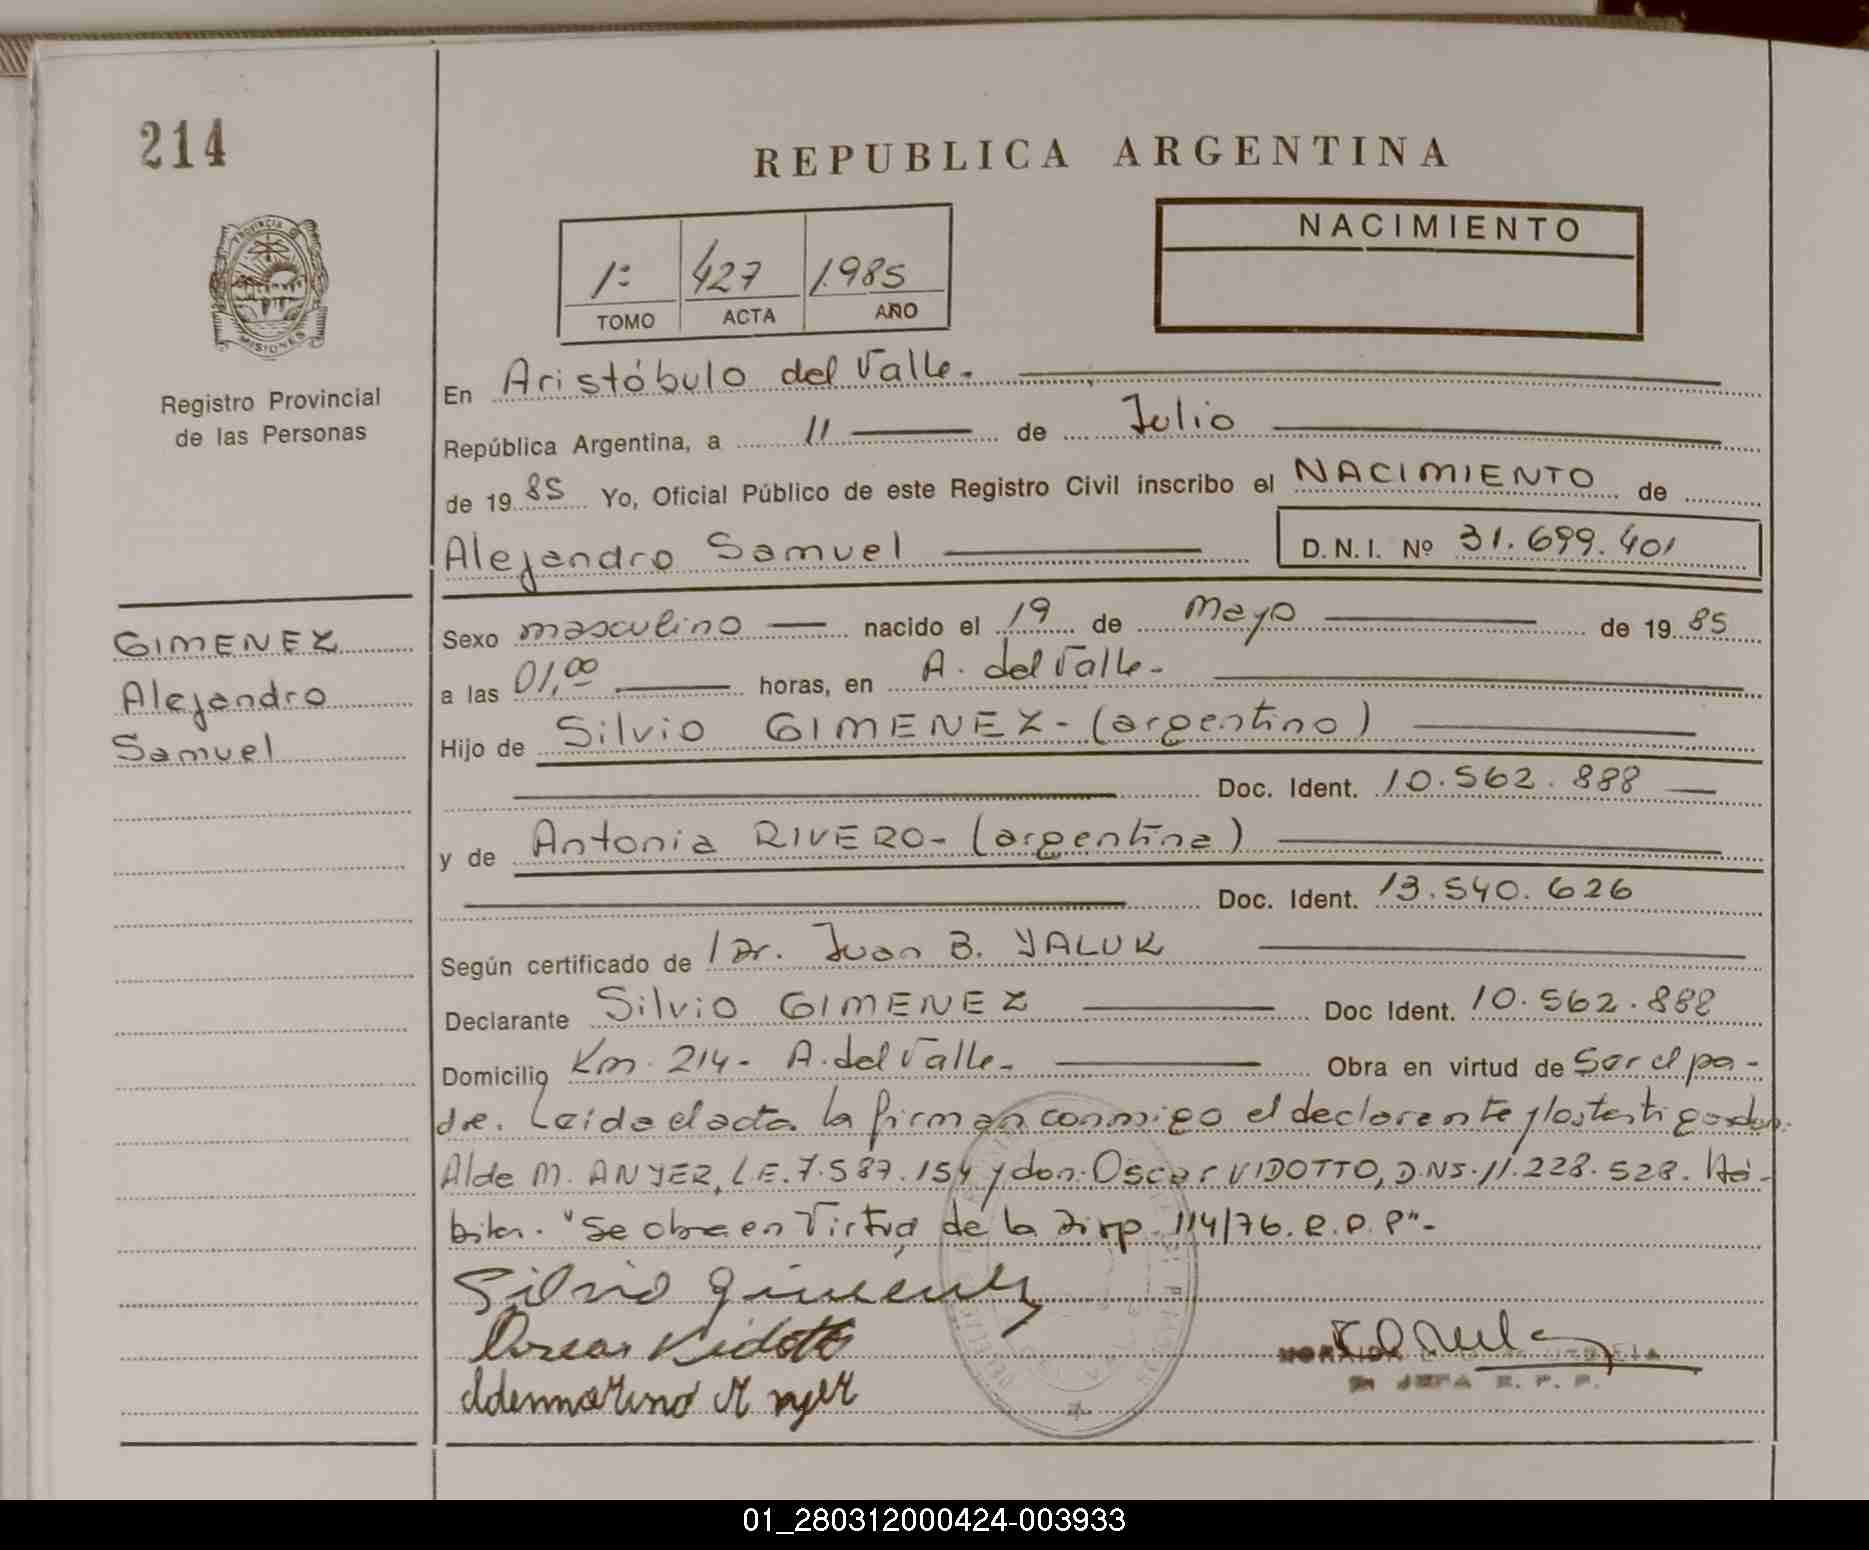 214
REPUBLICA ARGENTINA
PROVINCIA DE
MISIONES
Registro Provincial
de las Personas
1º 427 1.985
TOMO ACTA AÑO
NACIMIENTO
En Aristóbulo del Valle.
República Argentina, a 11 de Julio
de 19 85 Yo, Oficial Público de este Registro Civil inscribo el NACIMIENTO de
Alejandro Samuel D.N.I. Nº 31.699.401
GIMENEZ
Alejandro
Samuel
Sexo masculino nacido el 19 de Mayo de 19 85
a las 01,00 horas, en A. del Valle-
Hijo de Silvio GIMENEZ-(argentino)
Doc. Ident. 10.562.888
y de Antonia RIVERO-(argentina)
Doc. Ident. 13.540.626
Según certificado de /Dr. Juan B. YALUK
Declarante Silvio GIMENEZ Doc Ident. 10.562.888
Domicilio Km. 214- A. del Valle- Obra en virtud de Ser el pa-
dre. Leida el acta la firman conmigo el declarente y los testigos don:
Alde M. ANYER, L.E. 7.587.154 y don: Oscar VIDOTTO, D.N.I. 11.228.528. Há-
biles. "Se obra en Virtud de la Disp. 114/76. R.P.P"-
Silvio Gimenez
Oscar Vidotto
Aldemarino Anyer
2a JEFA R. P. P.
01_280312000424-003933